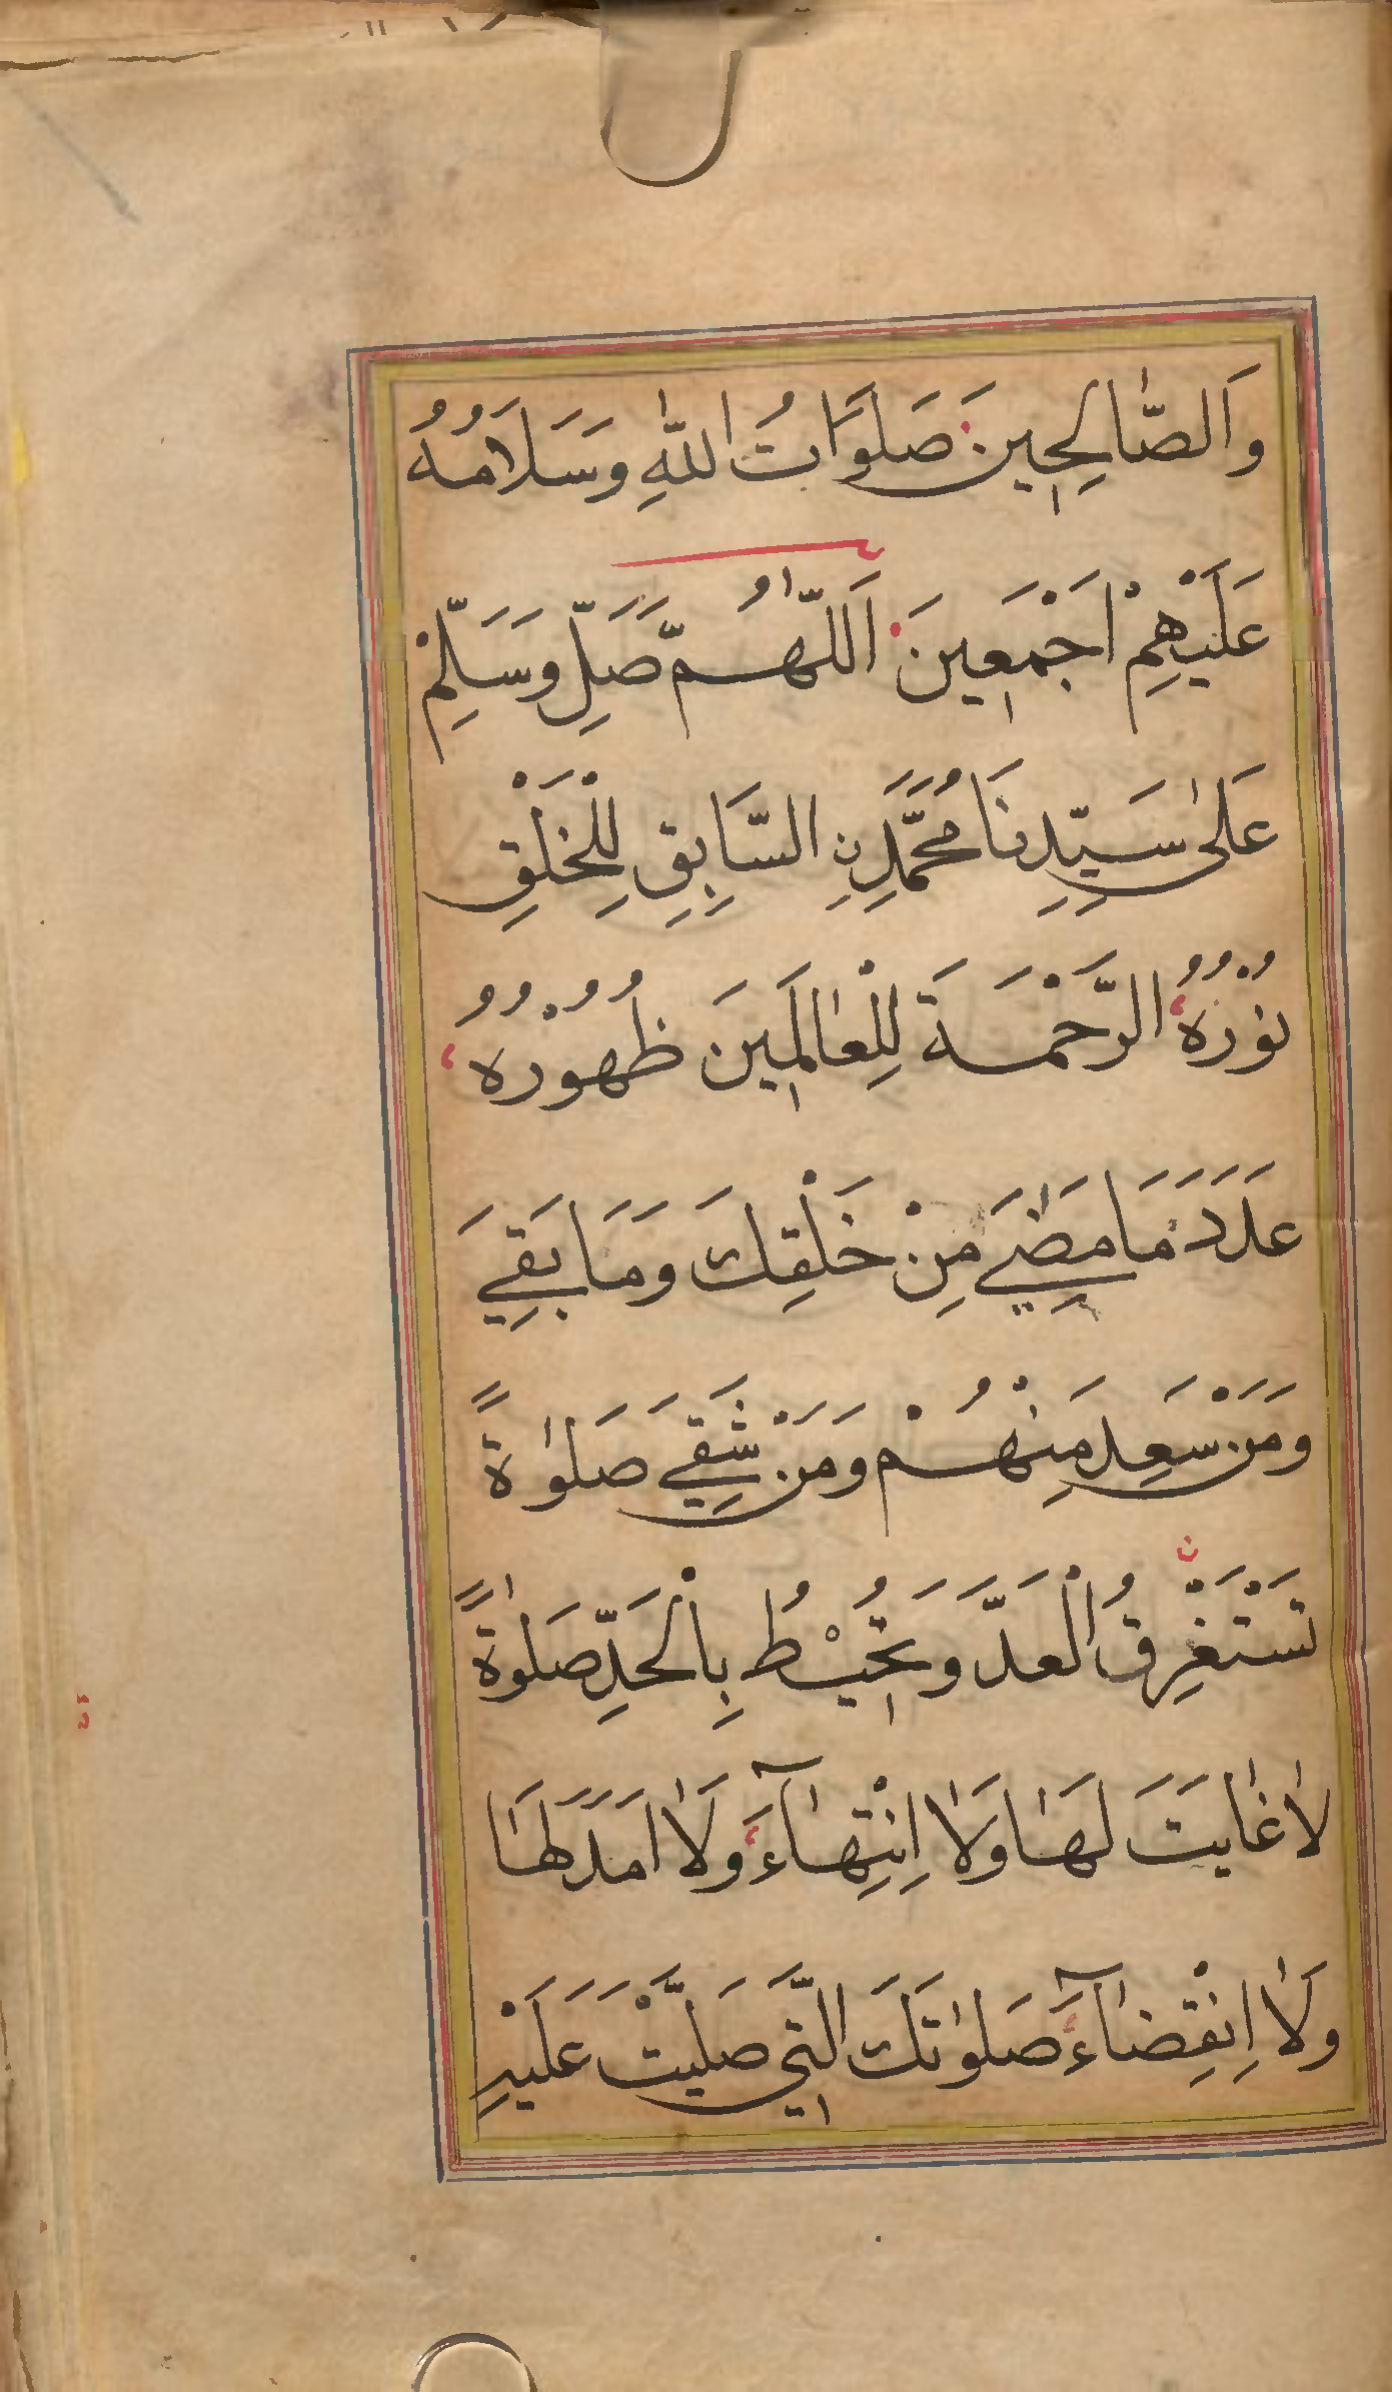 وَالصَّالِحِينَ صَلَوَاتُ اللّٰهِ وَسَلَامُهُ
عَلَيْهِمْ اَجْمَعِينَ اَللّٰهُمَّ صَلِّ وَسَلِّمْ
عَلٰى سَيِّدِنَا مُحَمَّدٍ نِ السَّابِقِ لِلْخَلْقِ
نُوْرُهُ الرَّحْمَةَ لِلْعٰالَمِينَ ظُهُوْرُهُ
عَدَدَ مَا مَضٰى مِنْ خَلْقِكَ وَمَا بَقِيَ
وَمَنْ سَعِدَ مِنْهُمْ وَمَنْ شَقِيَ صَلٰوةً
تَسْتَغْرِقُ الْعَدَّ وَتُحِيْطُ بِالْحَدِّ صَلٰوةً
لاٰ غٰايَتَ لَهٰا وَلاٰ اِنْتِهٰآءَ وَلاٰ اَمَدَ لَهٰا
وَلاٰ اِنْقِضٰآءَ صَلَوٰتَكَ الَّتِي صَلَّيْتَ عَلَيْهِ